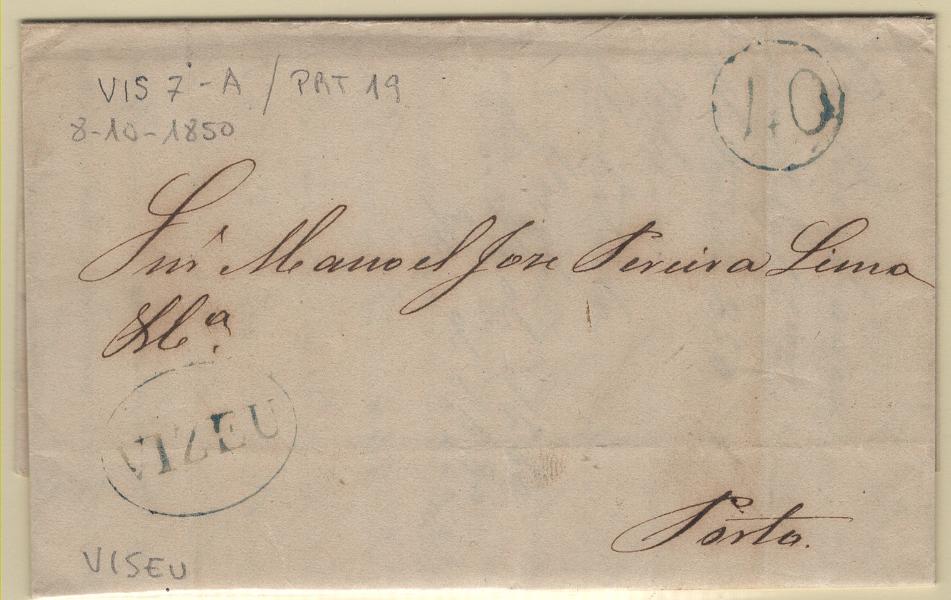 VIS 7-A / PRT 19
8-10-1850
40
Snr Manoel Jose Pereira Lima
VIZEU
Porto.
VISEU